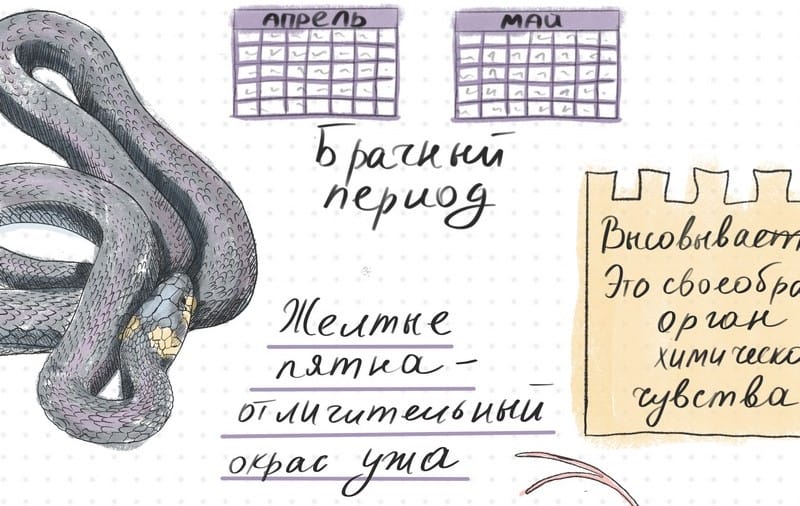 АПРЕЛЬ
МАЙ
Брачный
период
Желтые
пятна -
отличительный
окрас ужа
Высовывает
Это своеобра
орган
химическо
чувства